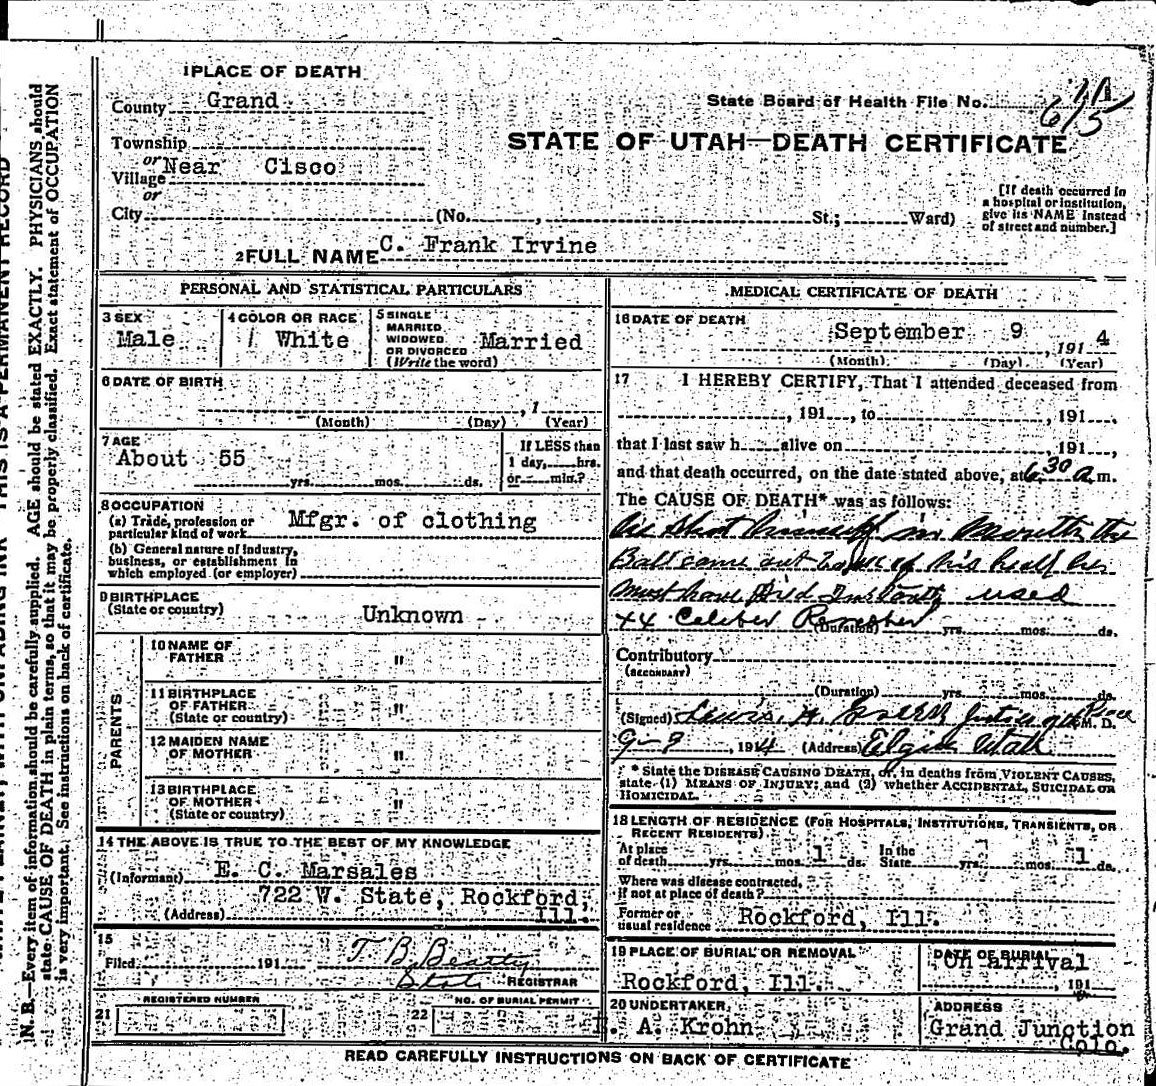 1 PLACE OF DEATH
County Grand
State Board of Health File No.
Township
or
Village Near Cisco
or
STATE OF UTAH—DEATH CERTIFICATE
City (No. , St.; Ward)
[If death occurred in
a hospital or institution,
give its NAME instead
of street and number.]
2 FULL NAME C. Frank Irvine
PERSONAL AND STATISTICAL PARTICULARS
3 SEX
Male
4 COLOR OR RACE
White
5 SINGLE
MARRIED
WIDOWED
OR DIVORCED
(Write the word)
Married
6 DATE OF BIRTH
, 1
(Month) (Day) (Year)
7 AGE
About 55
yrs. mos. ds.
If LESS than
1 day, hrs.
or min.?
8 OCCUPATION
(a) Trade, profession or
particular kind of work Mfgr. of clothing
(b) General nature of industry,
business, or establishment in
which employed (or employer)
9 BIRTHPLACE
(State or country)
Unknown
PARENTS
10 NAME OF
FATHER "
11 BIRTHPLACE
OF FATHER
(State or country) "
12 MAIDEN NAME
OF MOTHER "
13 BIRTHPLACE
OF MOTHER
(State or country) "
14 THE ABOVE IS TRUE TO THE BEST OF MY KNOWLEDGE
(Informant) E. C. Marsales
(Address) 722 W. State, Rockford,
Ill.
15
Filed 191 T. B. Beatty
State REGISTRAR
REGISTERED NUMBER
21
NO. OF BURIAL PERMIT
22
MEDICAL CERTIFICATE OF DEATH
16 DATE OF DEATH
September 9 , 1914
(Month) (Day) (Year)
17 I HEREBY CERTIFY, That I attended deceased from
, 191 , to , 191 ,
that I last saw h alive on , 191 ,
and that death occurred, on the date stated above, at 6.30 a.m.
The CAUSE OF DEATH* was as follows:
Shot himself in Mouth the
Ball came out back of his head he
must have Died Instantly used
44 Caliber Revolver
(Duration) yrs. mos. ds.
Contributory
(SECONDARY)
(Duration) yrs. mos. ds.
(Signed) Lewis H. Justice of Peace M. D.
9-9, 1914 (Address) Elgin Utah
* State the DISEASE CAUSING DEATH, or, in deaths from VIOLENT CAUSES,
state (1) MEANS OF INJURY; and (2) whether ACCIDENTAL, SUICIDAL OR
HOMICIDAL.
18 LENGTH OF RESIDENCE (FOR HOSPITALS, INSTITUTIONS, TRANSIENTS, OR
RECENT RESIDENTS)
At place
of death yrs. mos. 1 ds.
In the
State yrs. mos. 1 ds.
Where was disease contracted,
if not at place of death?
Former or
usual residence Rockford, Ill.
19 PLACE OF BURIAL OR REMOVAL
Rockford, Ill.
DATE OF BURIAL
On arrival
, 191
20 UNDERTAKER
A. Krohn
ADDRESS
Grand Junction
Colo.
READ CAREFULLY INSTRUCTIONS ON BACK OF CERTIFICATE
N. B.—Every item of information should be carefully supplied. AGE should be stated EXACTLY. PHYSICIANS should
state CAUSE OF DEATH in plain terms, so that it may be properly classified. Exact statement of OCCUPATION
is very important. See instructions on back of certificate.